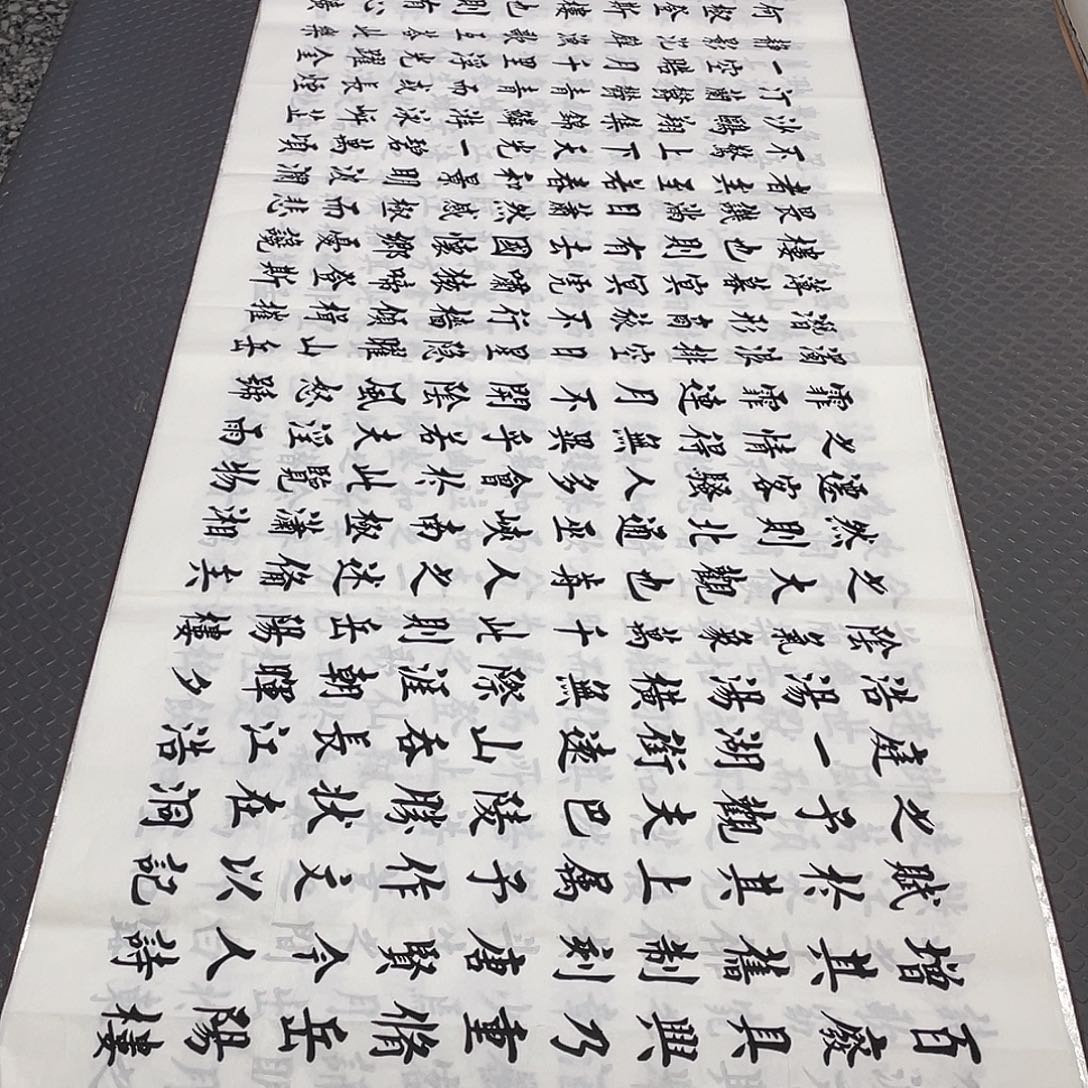 百廢具興乃重脩岳陽樓
增其舊制刻唐賢今人詩
賦於其上属予作文以記
之予觀夫巴陵勝狀在洞
庭一湖銜遠山吞長江浩
浩湯湯橫無際涯朝暉夕
陰氣象萬千此則岳陽樓
之大觀也前人之述備矣
然則北通巫峽南極瀟湘
遷客騷人多會於此覽物
之情得無異乎若夫淫雨
霏霏連月不開陰風怒號
濁浪排空日星隱曜山岳
潛形商旅不行檣傾楫摧
薄暮冥冥虎嘯猿啼登斯
樓也則有去國懷鄉憂讒
畏譏滿目蕭然感極而悲
者矣至若春和景明波瀾
不驚上下天光一碧萬頃
沙鷗翔集錦鱗游泳岸芷
汀蘭鬱鬱青青而或長煙
一空皓月千里浮光躍金
靜影沉璧漁歌互答此樂
何極登斯樓也則有心曠